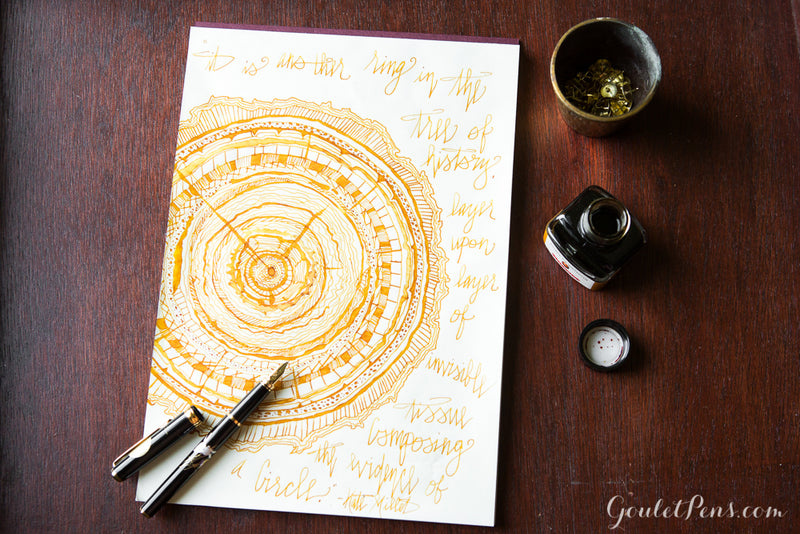 it is another ring in the
tree of
history.
layer
upon
layer
of
invisible
tissue
composing
the evidence of
a circle." -Kate Millet
GouletPens.com